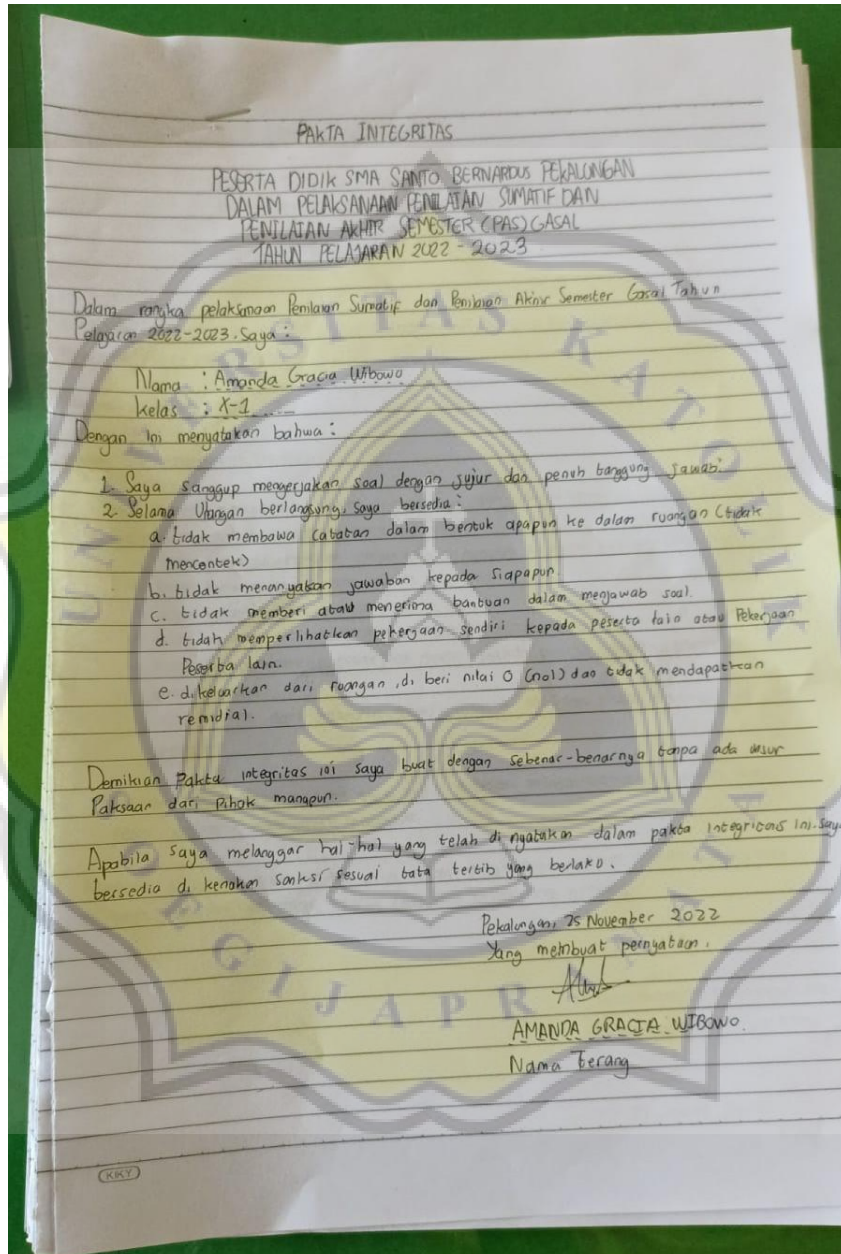 PAKTA INTEGRITAS
PESERTA DIDIK SMA SANTO BERNARDUS PEKALONGAN
DALAM PELAKSANAAN PENILAIAN SUMATIF DAN
PENILAIAN AKHIR SEMESTER (PAS) GASAL
TAHUN PELAJARAN 2022 - 2023
Dalam rangka pelaksanaan Penilaian Sumatif dan Penilaian Akhir Semester Gasal Tahun
Pelajaran 2022-2023. Saya :
Nama : Amanda Gracia Wibowo
Kelas : X-1
Dengan ini menyatakan bahwa :
1. Saya sanggup mengerjakan soal dengan jujur dan penuh tanggung jawab.
2. Selama Ulangan berlangsung, saya bersedia :
a. tidak membawa catatan dalam bentuk apapun ke dalam ruangan (tidak
mencontek)
b. tidak menanyakan jawaban kepada siapapun
c. tidak memberi atau menerima bantuan dalam menjawab soal.
d. tidak memperlihatkan pekerjaan sendiri kepada peserta lain atau Pekerjaan
Peserta lain.
e. dikeluarkan dari ruangan, di beri nilai 0 (nol) dan tidak mendapatkan
remidial).
Demikian Pakta integritas ini saya buat dengan sebenar-benarnya tanpa ada unsur
Paksaan dari Pihak manapun.
Apabila saya melanggar hal-hal yang telah di nyatakan dalam pakta integritas ini. Saya
bersedia di kenakan sanksi sesuai tata tertib yang berlaku.
Pekalongan, 25 November 2022
Yang membuat pernyataan,
AMANDA GRACIA WIBOWO
Nama Terang
KKY
UNIVERSITAS KATOLIK
SOEGIJAPRANATA